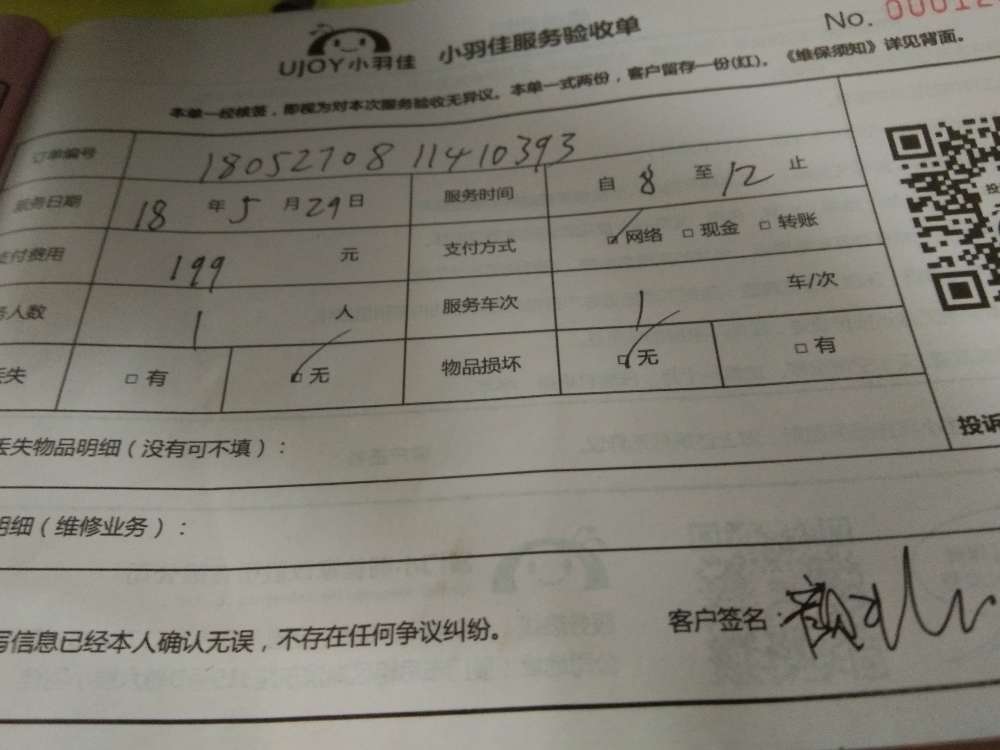 UJOY小羽佳 小羽佳服务验收单 No. 00012
本单一经核签，即视为对本次服务验收无异议。本单一式两份，客户留存一份(红)。《维保须知》详见背面。
订单编号 18052708 11410393
服务日期 18 年 5 月 29 日 服务时间 自 8 至 12 止
支付费用 199 元 支付方式 ☑网络 □现金 □转账
务人数 1 人 服务车次 1 车/次
丢失 □有 ☑无 物品损坏 ☑无 □有
丢失物品明细（没有可不填）：
投诉
明细（维修业务）：
写信息已经本人确认无误，不存在任何争议纠纷。 客户签名：